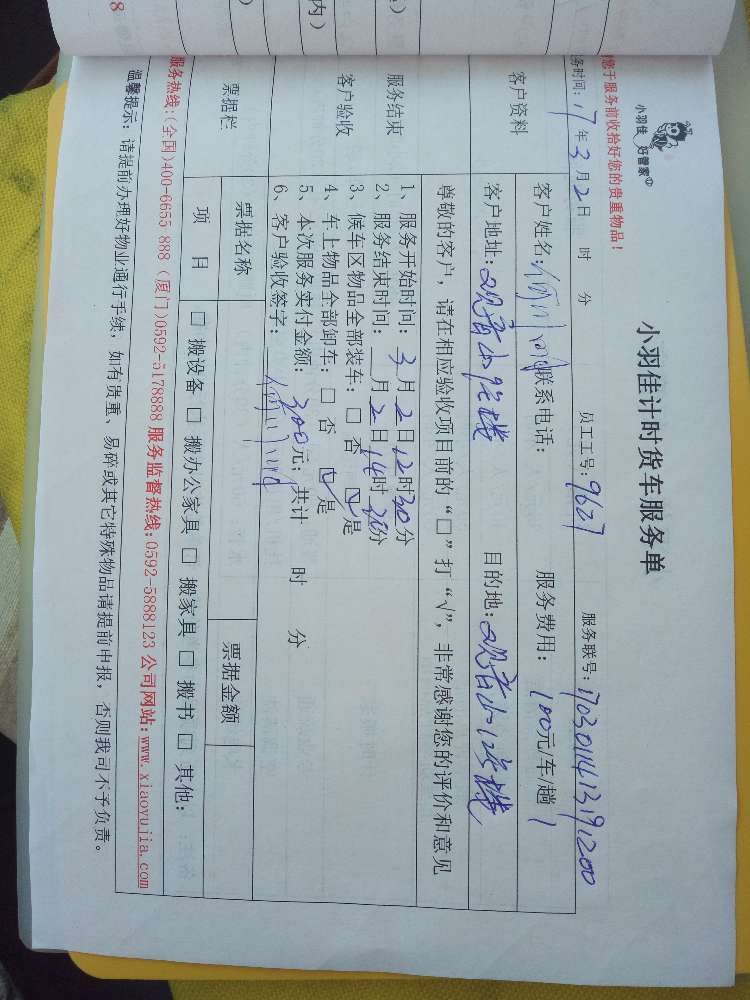 小羽佳 好管家
小羽佳计时货车服务单
您于服务前收拾好您的贵重物品！
务时间：17年3月2日 时 分 员工工号：9627 服务联号：
客户资料
客户姓名： 联系电话： 服务费用：100元/车/趟
客户地址：观音山9号楼 目的地：观音山12号楼
尊敬的客户，请在相应验收项目前的“□”打“√”，非常感谢您的评价和意见
服务结束
客户验收
1、服务开始时间：3月2日12时30分
2、服务结束时间： 月2日14时 分
3、候车区物品全部装车：□ 否 ☑ 是
4、车上物品全部卸车：□ 否 ☑ 是
5、本次服务实付金额：300元；共计 时 分
6、客户验收签字：
票据栏
票据名称 票据金额
项 目 □ 搬设备 □ 搬办公家具 □ 搬家具 □ 搬书 □ 其他：
服务热线:(全国)400-6655 888 (厦门)0592-5178888 服务监督热线:0592-5888123 公司网站:www.xiaoyujia.com
温馨提示：请提前办理好物业通行手续，如有贵重、易碎或其它特殊物品请提前申报，否则我司不予负责。